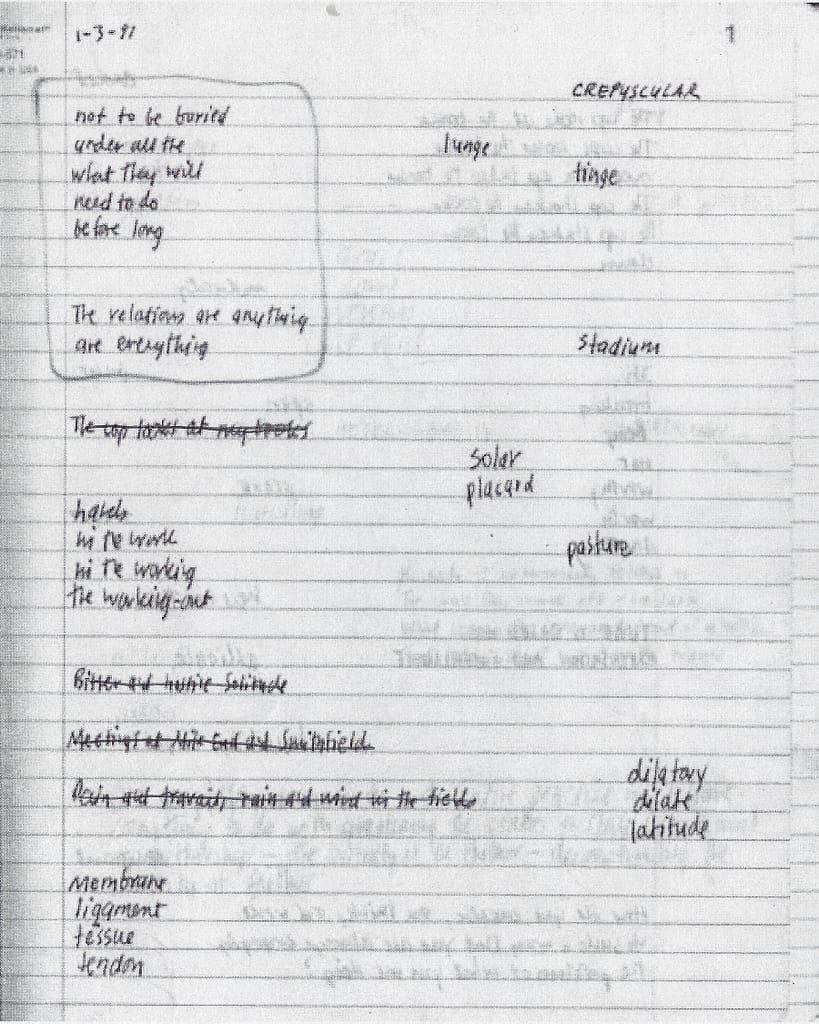 1-3-91
1
CREPUSCULAR
not to be buried
under all the
lunge
what they will
tinge
need to do
before long
The relations are anything
are everything
stadium
The cop looks at my books
solar
placard
hands
in the work
pasture
in the working
the working-out
Bitter and hostile Solitude
Meetings at Mile End and Smithfield
Pain and travail, rain and wind in the fields
dilatory
dilate
latitude
Membrane
ligament
tissue
tendon